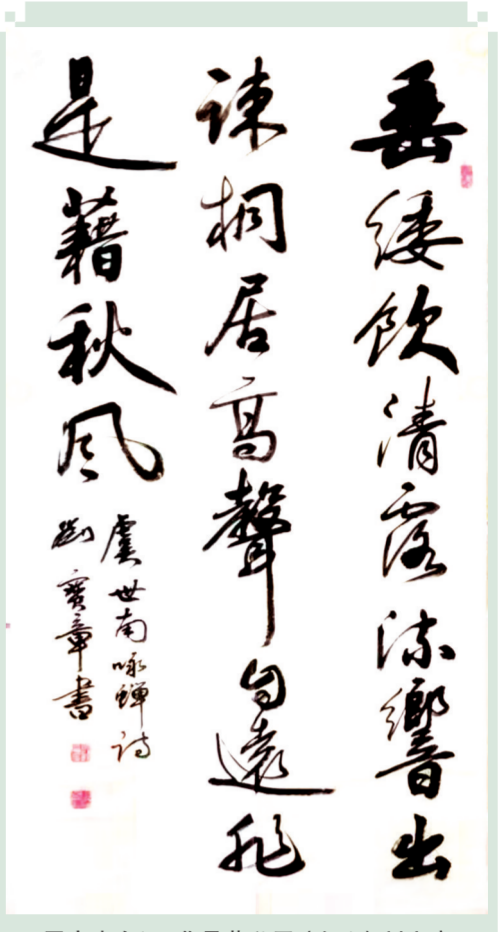 垂緌飲清露流響出
疎桐居高聲自遠非
是藉秋风
虞世南咏蝉诗
劉寶章书